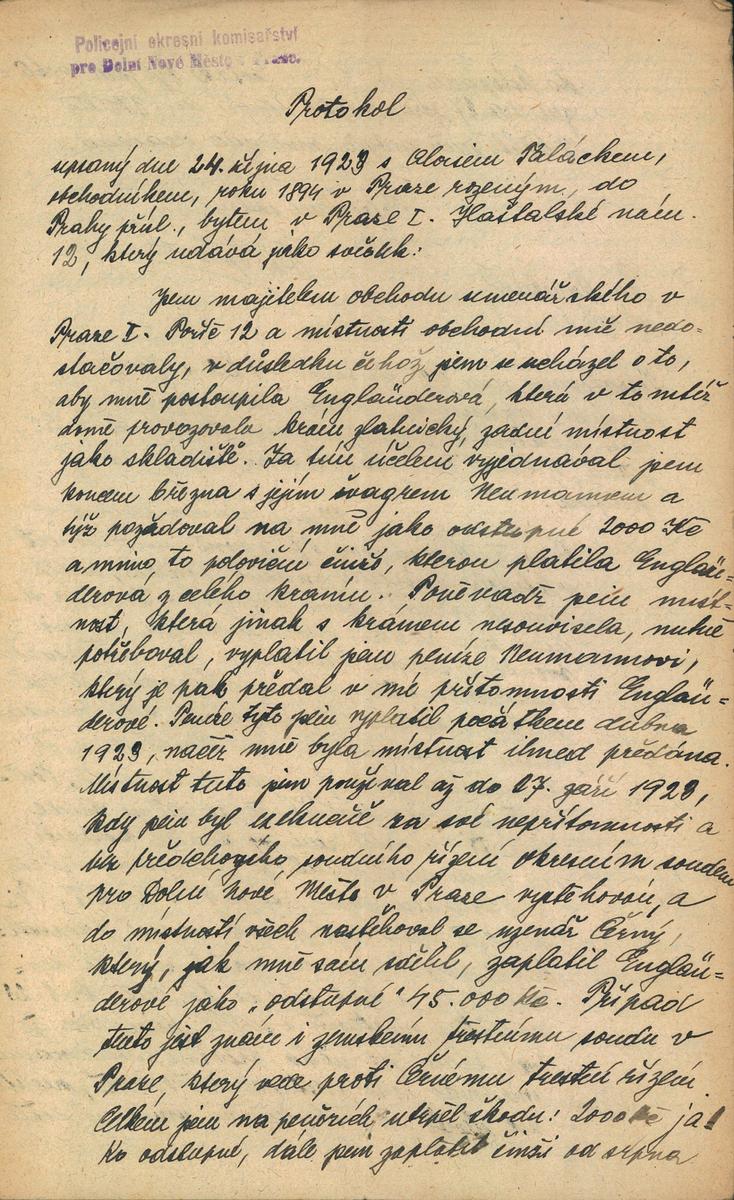 Policejní okresní komisařství
pro Dolní Nové Město v Praze.
Protokol
sepsaný dne 24. října 1923 s Aloisem Paláčkem,
obchodníkem, roku 1894 v Praze rozeným, do
Prahy přísl., bytem v Praze I. Haštalské nám.
12, který udává jako svědek:
Jsem majitelem obchodu semenářského v
Praze II. Poříč 12 a místnosti obchodní mně nedo-
stačovaly, v důsledku čehož jsem se ucházel o to,
aby mně postoupila Engländerová, která v tomtéž
domě provozovala krám zlatnický, zadní místnost
jako skladiště. Za tím účelem vyjednával jsem
koncem března s jejím švagrem Neumannem a
týž požadoval na mně jako odstupné 2000 Kč
a mimo to poloviční činži, kterou platila Englän-
derová z celého krámu. Poněvadž jsem míst-
nost, která jinak s krámem nesouvisela, nutně
potřeboval, vyplatil jsem peníze Neumannovi,
který je pak předal v mé přítomnosti Englän-
derové. Peníze tyto jsem vyplatil počátkem dubna
1923, načež mně byla místnost ihned předána.
Místnost tuto jsem používal až do 17. září 1923,
kdy jsem byl exekučně za své nepřítomnosti a
bez předchozího soudního řízení okresním soudem
pro Dolní Nové Město v Praze vystěhován, a
do místností všech nastěhoval se uzenář Černý,
který, jak mně sám sdělil, zaplatil Englän-
derové jako „odstupné" 45.000 Kč. Případ
tento jest znám i zemskému trestnímu soudu v
Praze, který vede proti Černému trestní řízení.
Celkem jsem na penězích utrpěl škodu: 2000 Kč ja-
ko odstupné, dále jsem zaplatil činži od srpna